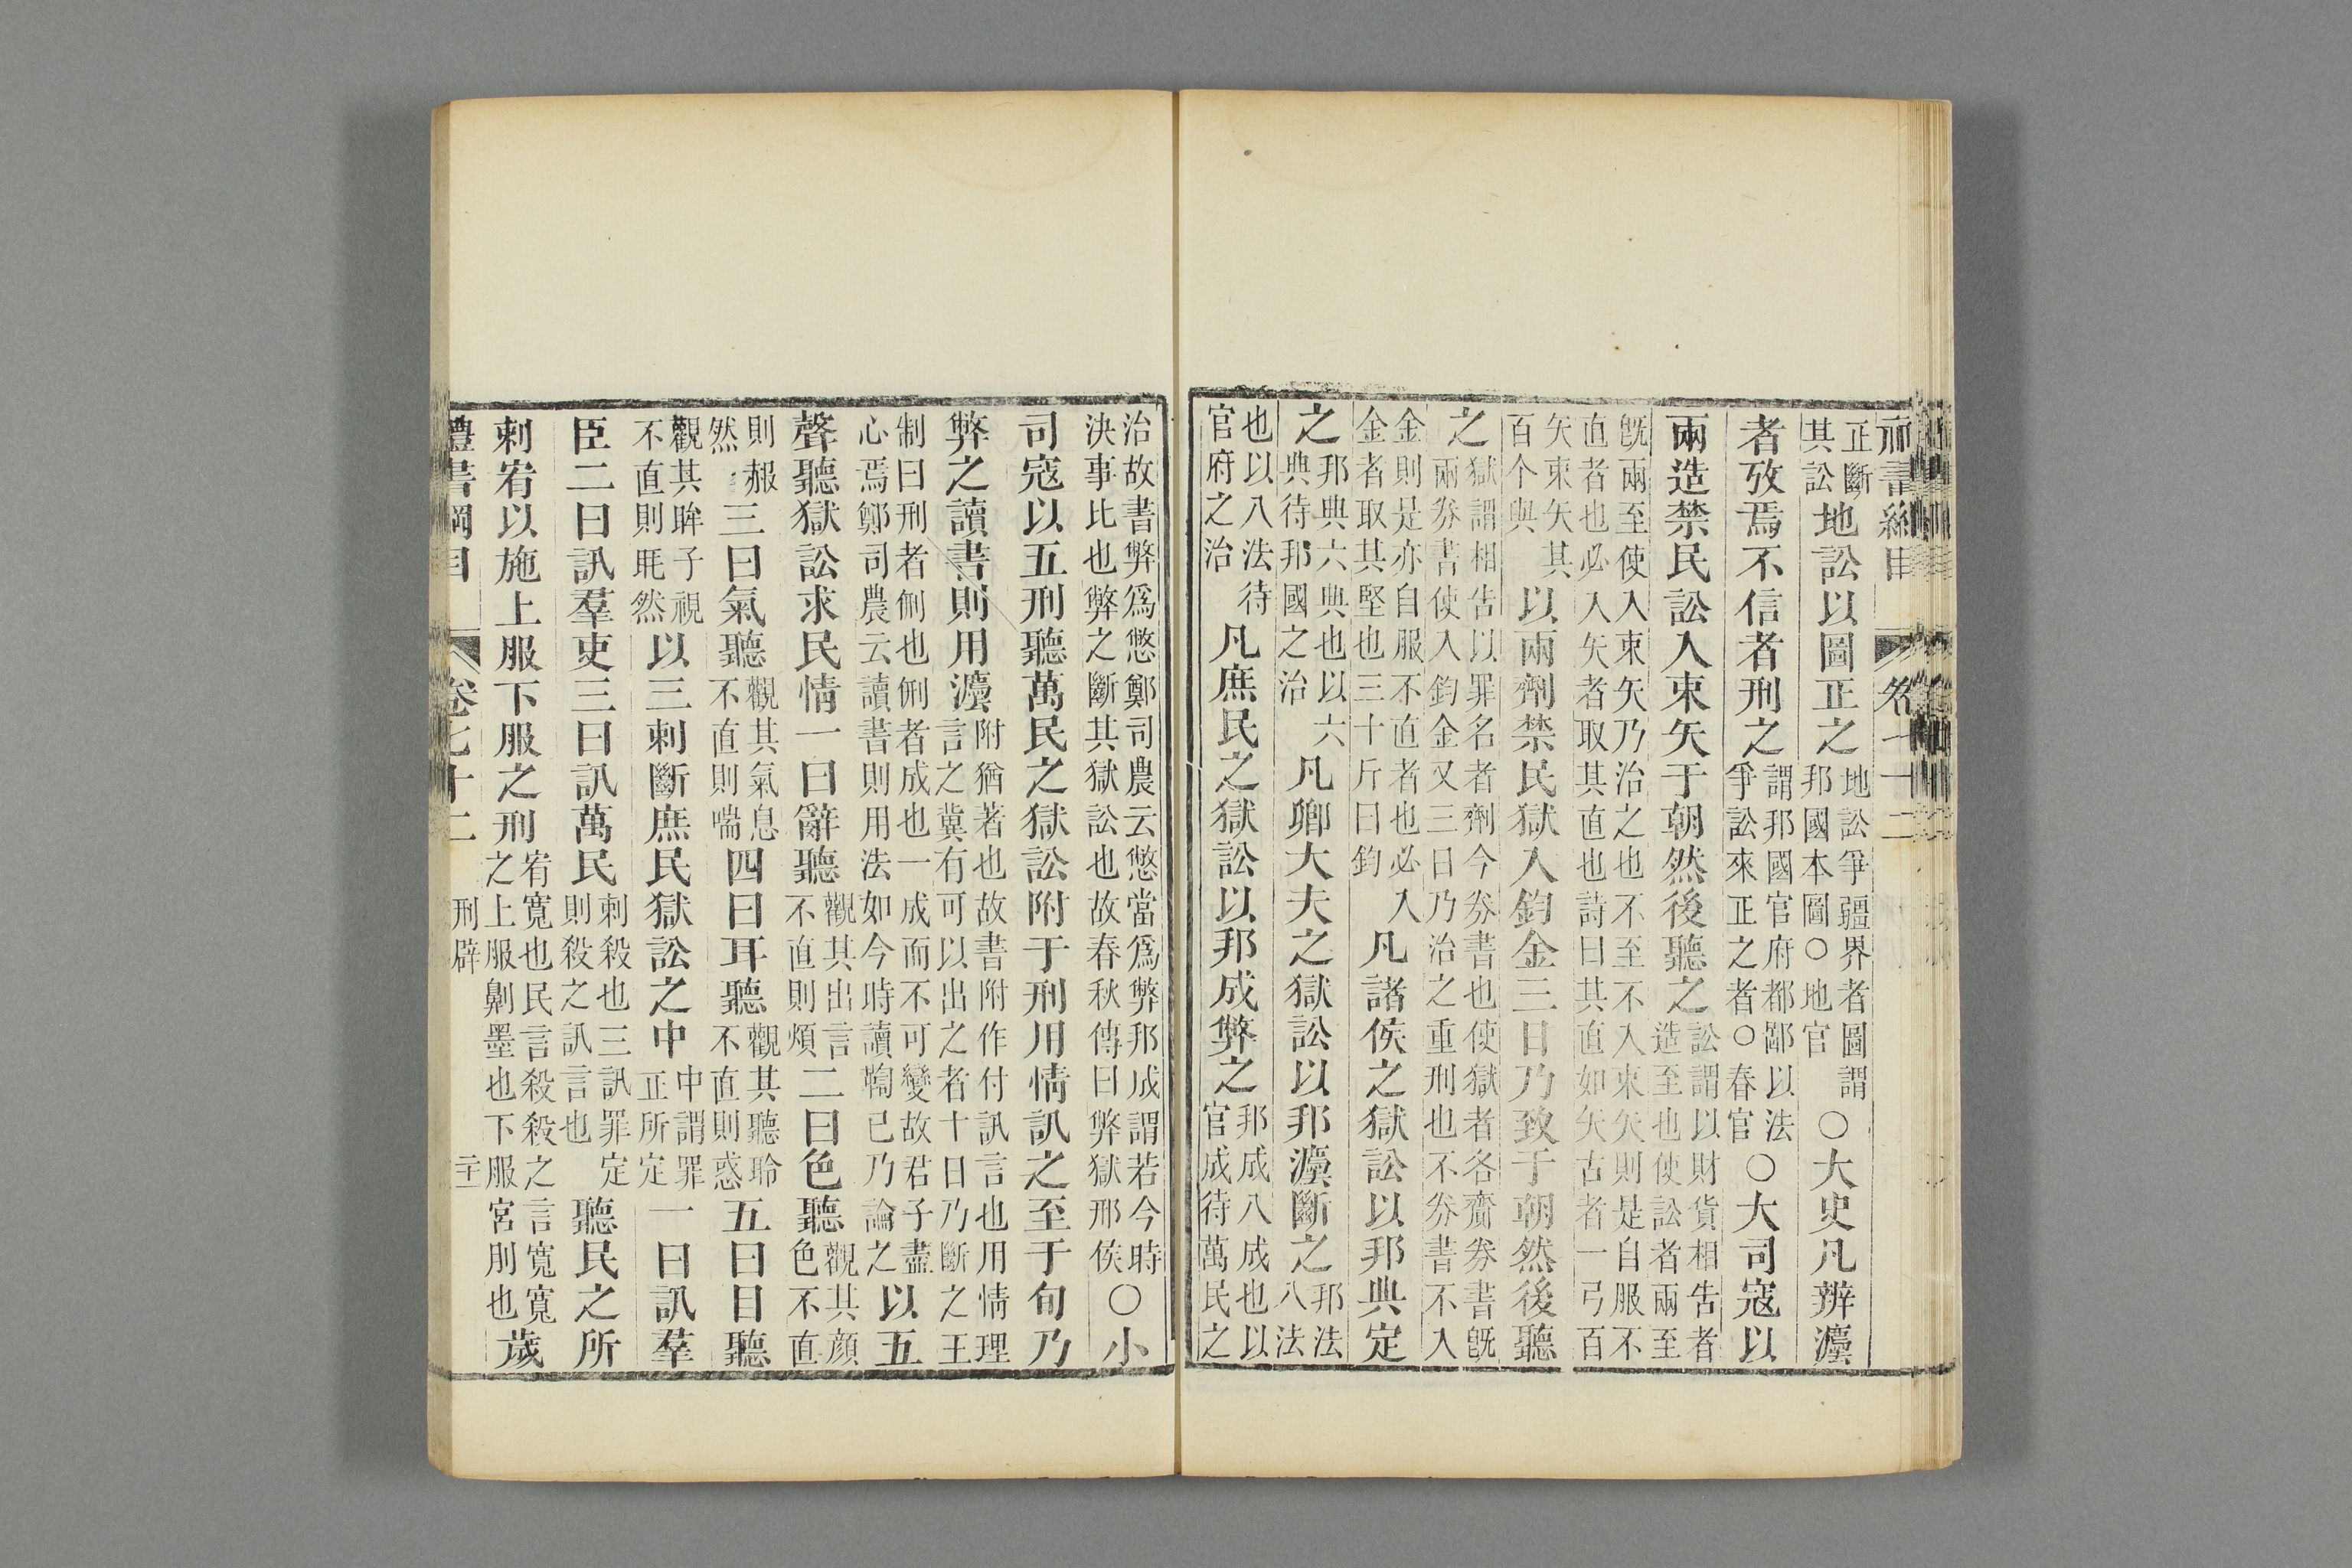 正斷其訟地訟以圖正之地訟爭疆界者圖謂邦國本圖○地官○大史凡辨灋
者攷焉不信者刑之謂邦國官府都鄙以法爭訟來正之者○春官○大司寇以
兩造禁民訟入束矢于朝然後聽之訟謂以財貨相告者造至也使訟者兩至
旣兩至使入束矢乃治之也不至不入束矢則是自服不直者也必入矢者取其直也詩曰其直如矢古者一弓百
矢束矢其百个與以兩劑禁民獄入鈞金三日乃致于朝然後聽
之獄謂相告以罪名者劑今券書也使獄者各齎券書旣兩券書使入鈞金又三日乃治之重刑也不券書不入
金則是亦自服不直者也必入金者取其堅也三十斤曰鈞凡諸侯之獄訟以邦典定
之邦典六典也以六典待邦國之治凡卿大夫之獄訟以邦灋斷之邦法八法
也以八法待官府之治凡庶民之獄訟以邦成弊之邦成八成也以官成待萬民之
治故書弊爲憋鄭司農云憋當爲弊邦成謂若今時決事比也弊之斷其獄訟也故春秋傳曰弊獄邢侯○小
司寇以五刑聽萬民之獄訟附于刑用情訊之至于旬乃
弊之讀書則用灋附猶著也故書附作付訊言也用情理言之冀有可以出之者十日乃斷之王
制曰刑者侀也侀者成也一成而不可變故君子盡心焉鄭司農云讀書則用法如今時讀鞫已乃論之以五
聲聽獄訟求民情一曰辭聽觀其出言不直則煩二曰色聽觀其顏色不直
則赧然三曰氣聽觀其氣息不直則喘四曰耳聽觀其聽聆不直則惑五曰目聽
觀其眸子視不直則眊然以三刺斷庶民獄訟之中中謂罪正所定一曰訊羣
臣二曰訊羣吏三曰訊萬民刺殺也三訊罪定則殺之訊言也聽民之所
刺宥以施上服下服之刑宥寬也民言殺殺之言寬寬之上服劓墨也下服宮刖也歲
禮書綱目 卷七十二 刑辟